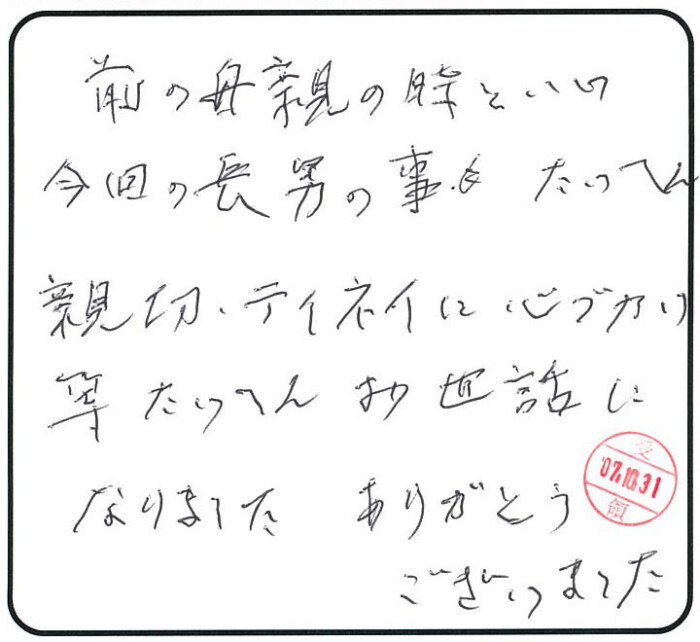 前の母親の時といい
今回の長男の事も たいへん
親切、テイネイに心づかい
等 たいへん お世話に
なりました ありがとう
ございました
受
'07.10.31
領